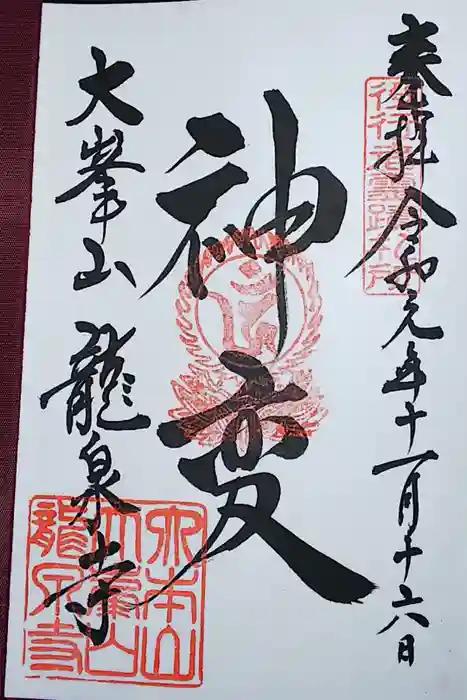 奉拝 令和元年十一月十六日
役行者霊蹟札所
神変
大峯山 龍泉寺
大本山
大峯山
龍泉寺